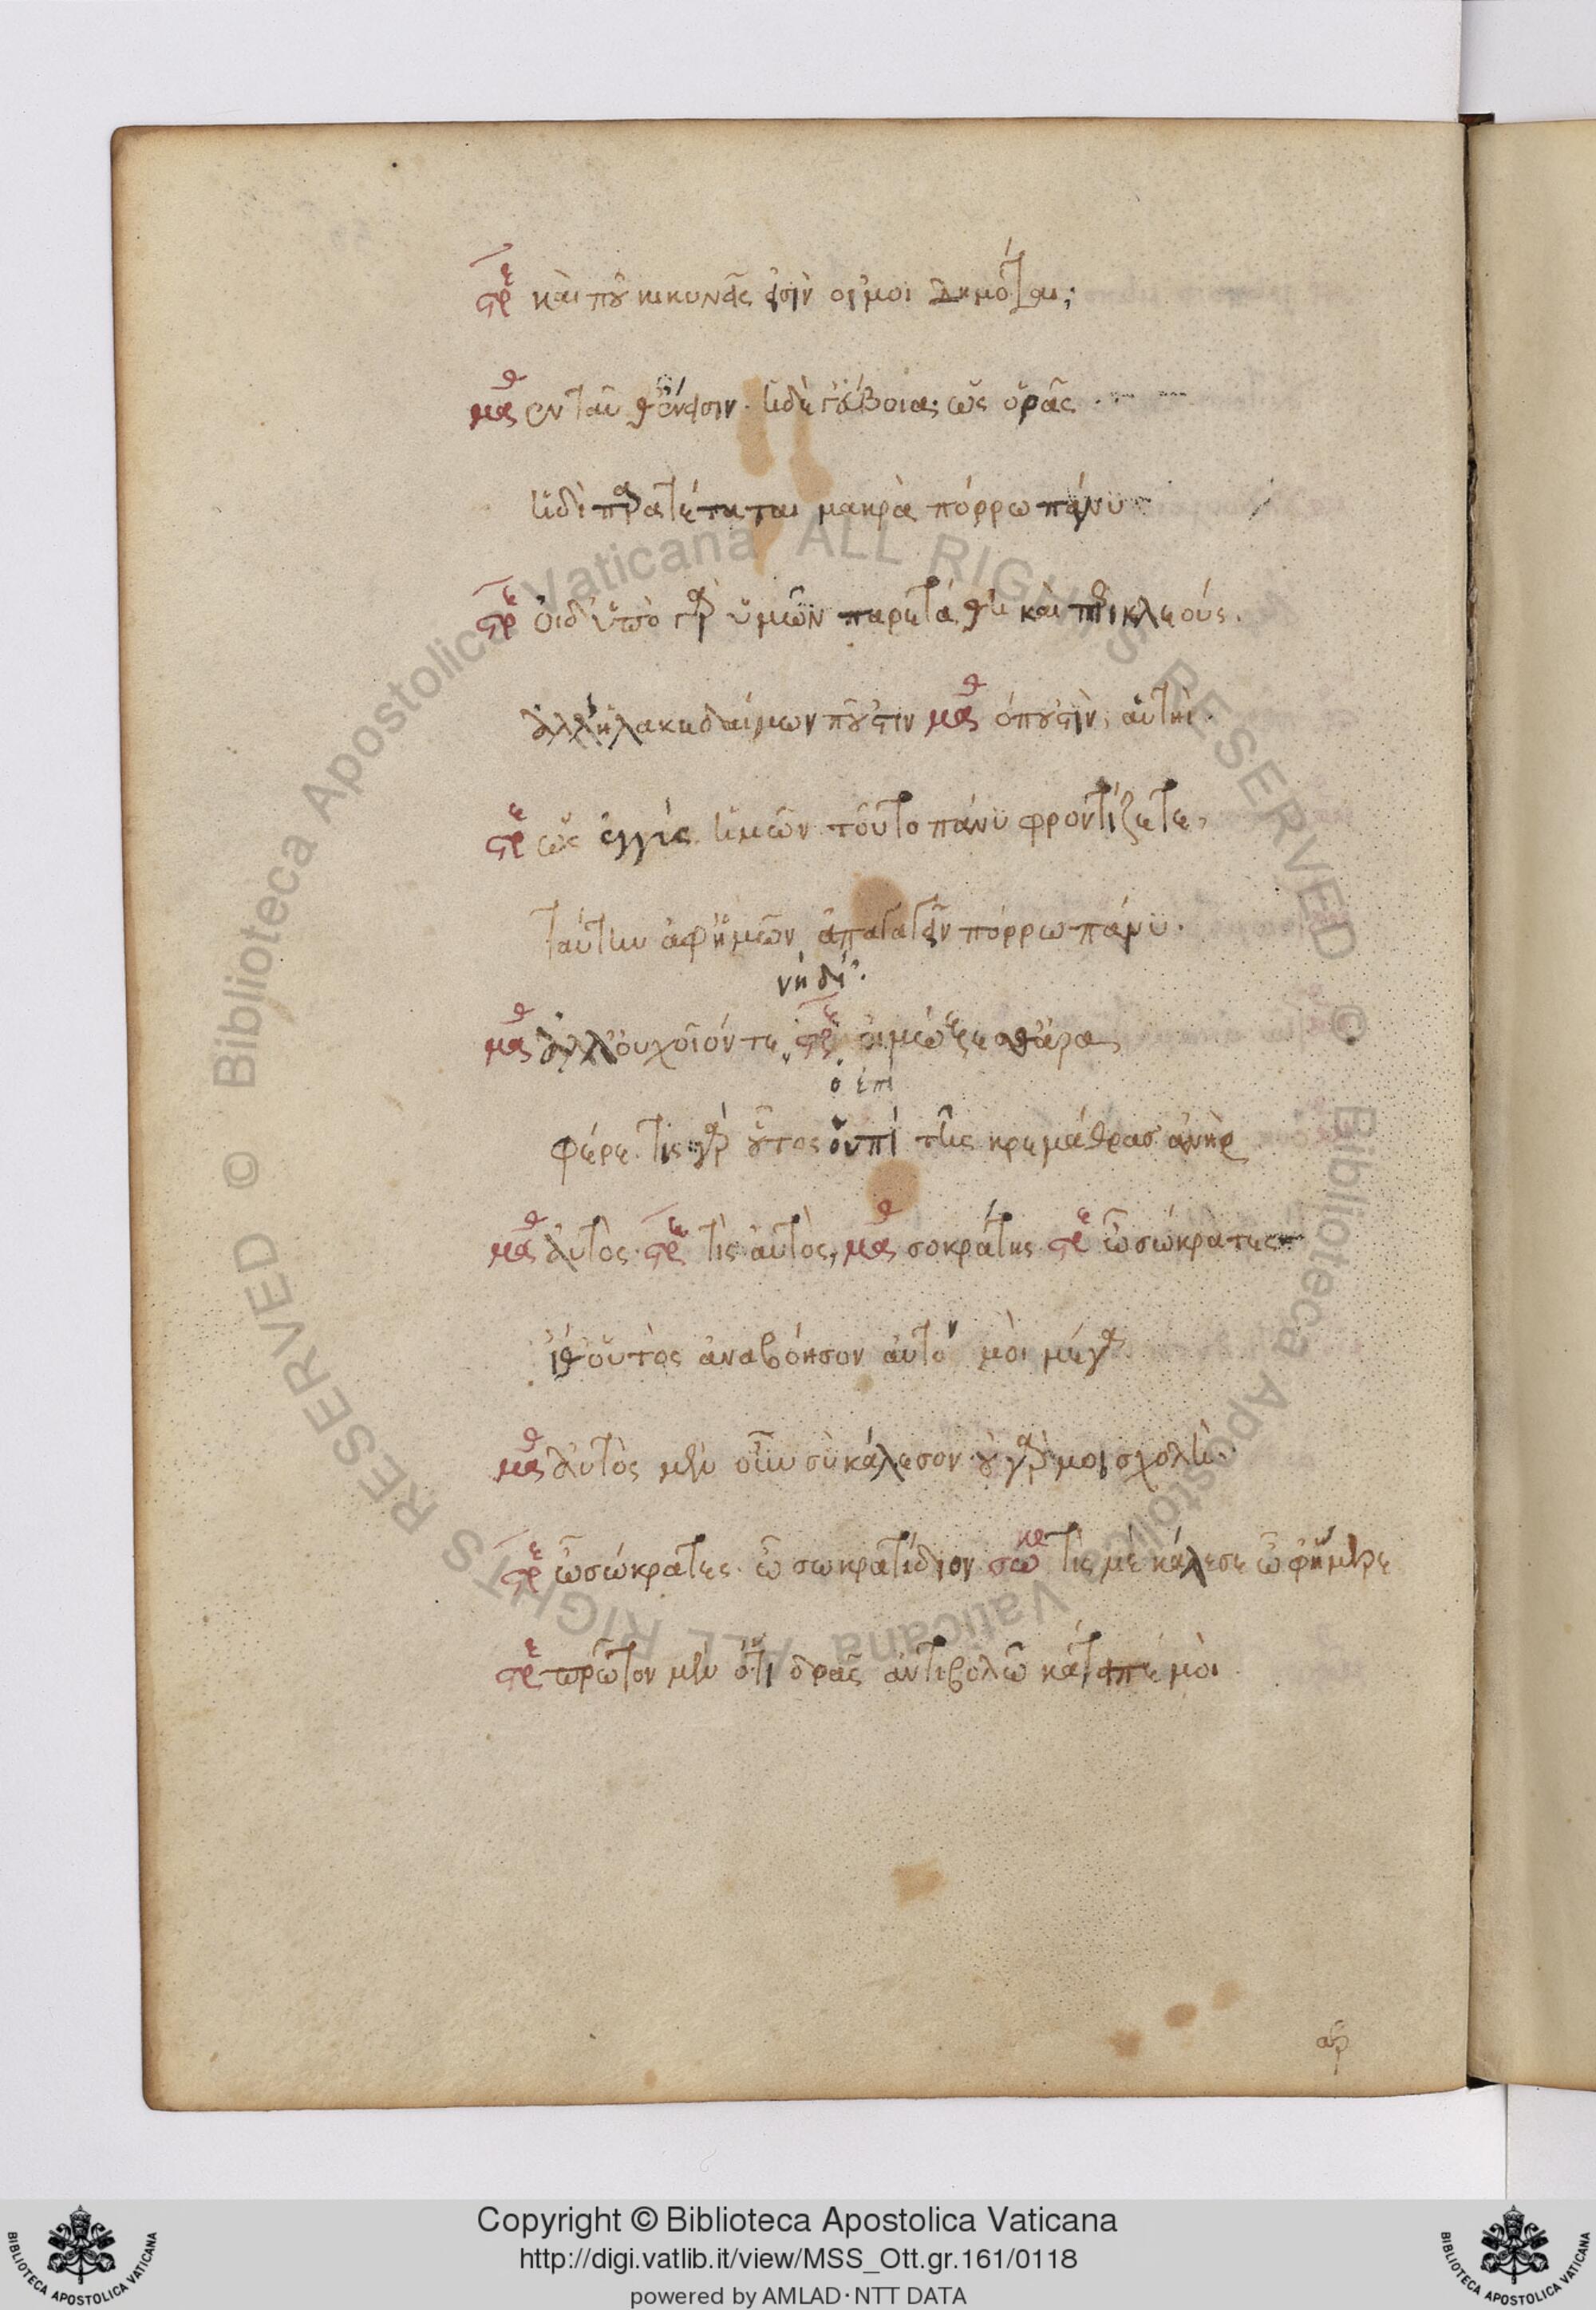 στρε καὶ ποῦ κικυνεῖς εἰσὶν οἱ 'μοὶ δημόται;
μαθ ἐνταῦθ' ἔνεισιν. ἡ δέ γ' εὔβοια, ὡς ὁρᾶς.
ἡδὶ παρατέταται μακρὰ πόρρω πάνυ
στρε οἶδ' ὑπὸ γὰρ ὑμῶν παρετάθη καὶ περικλέους.
ἀλλ' ἡ λακεδαίμων ποῦ 'στιν μαθ ὅπου 'στὶν; αὑτηί.
στρε ὡς ἐγγὺς ἡμῶν τοῦτο πάνυ φροντίζετε,
ταύτην ἀφ' ἡμῶν ἀπαγαγεῖν πόρρω πάνυ.
νὴ δί'.
μαθ ἀλλ' οὐχ οἷόν τε στρε οἰμώξεσθ' ἄρα
ὁ ἐπὶ
φέρε τίς γὰρ οὗτος οὑπὶ τῆς κρεμάθρας ἀνήρ
μαθ αὐτὸς στρε τίς αὐτὸς, μαθ σοκράτης στρε ὦ σώκρατες
ἴθ' οὗτος ἀναβόησον αὐτόν μοι μέγα
μαθ αὐτὸς μὲν οὖν σὺ κάλεσον οὐ γάρ μοι σχολή.
στρε ὦ σώκρατες. ὦ σωκρατίδιον σωκρ τί με κάλεσε ὦ 'φήμερε
στρε πρῶτον μὲν ὅ τι δρᾷς ἀντιβολῶ κάτειπέ μοι
Copyright © Biblioteca Apostolica Vaticana
http://digi.vatlib.it/view/MSS_Ott.gr.161/0118
powered by AMLAD·NTT DATA